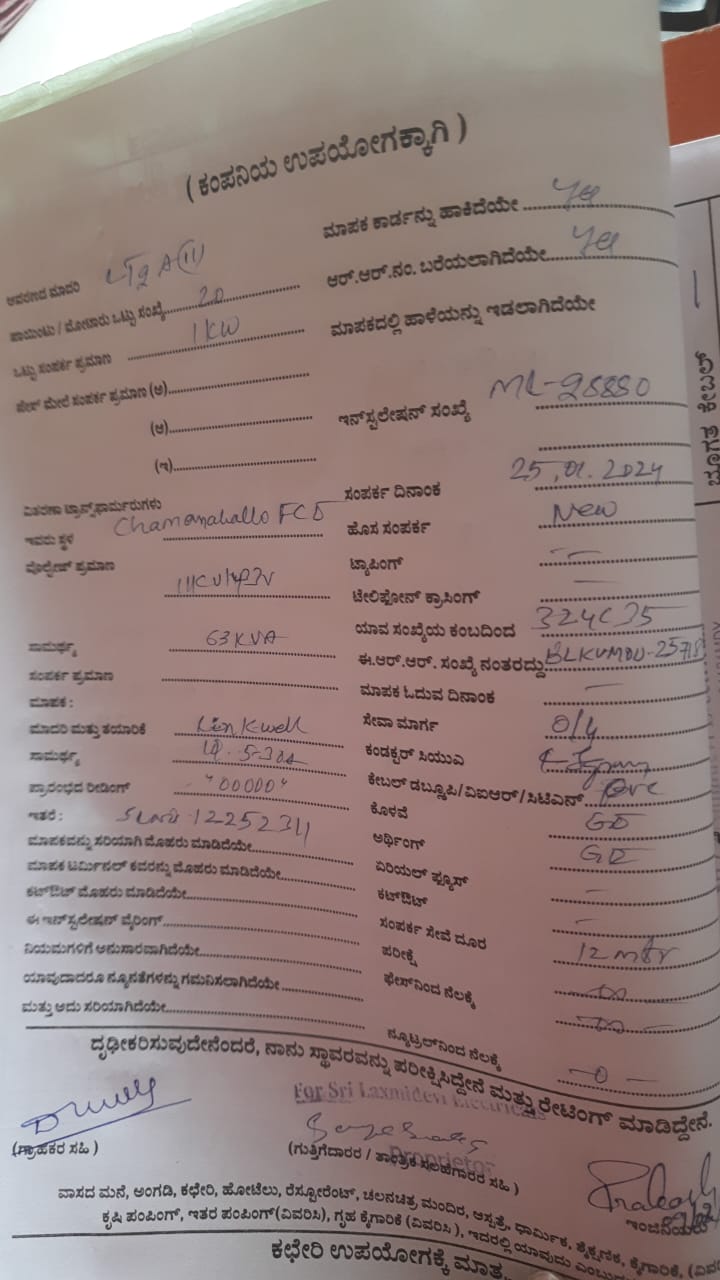 ( ಕಂಪನಿಯ ಉಪಯೋಗಕ್ಕಾಗಿ )
ಮಾಪಕ ಕಾರ್ಡನ್ನು ಹಾಕಿದೆಯೇ Yes
ಆವರಣದ ಮಾದರಿ
ಆರ್.ಆರ್.ನಂ. ಬರೆಯಲಾಗಿದೆಯೇ Yes
ಪಾಯಿಂಟು / ಮೋಟಾರು ಒಟ್ಟು ಸಂಖ್ಯೆ 20
ಮಾಪಕದಲ್ಲಿ ಹಾಳೆಯನ್ನು ಇಡಲಾಗಿದೆಯೇ
ಒಟ್ಟು ಸಂಪರ್ಕ ಪ್ರಮಾಣ 1 KW
ಫೇಸ್ ಮೇಲೆ ಸಂಪರ್ಕ ಪ್ರಮಾಣ (ಅ)
ಇನ್‌ಸ್ಟಲೇಷನ್ ಸಂಖ್ಯೆ ML-28880
(ಆ)
(ಇ)
ಸಂಪರ್ಕ ದಿನಾಂಕ 25.01.2024
ವಿತರಣಾ ಟ್ರಾನ್ಸ್‌ಫಾರ್ಮರುಗಳು
ಹೊಸ ಸಂಪರ್ಕ New
ಇವರು ಸ್ಥಳ Chamanahallo
ಟ್ಯಾಪಿಂಗ್
ವೊಲ್ಟೇಜ್ ಪ್ರಮಾಣ
ಟೆಲಿಫೋನ್ ಕ್ರಾಸಿಂಗ್
ಯಾವ ಸಂಖ್ಯೆಯ ಕಂಬದಿಂದ
ಸಾಮರ್ಥ್ಯ 63 KVA
ಈ.ಆರ್.ಆರ್. ಸಂಖ್ಯೆ ನಂತರದ್ದು
ಸಂಪರ್ಕ ಪ್ರಮಾಣ
ಮಾಪಕ ಓದುವ ದಿನಾಂಕ —
ಮಾಪಕ :
ಸೇವಾ ಮಾರ್ಗ O/H
ಮಾದರಿ ಮತ್ತು ತಯಾರಿಕೆ Linkwell
ಕಂಡಕ್ಟರ್ ಸಿಯುವಿ
ಸಾಮರ್ಥ್ಯ 5-30A
ಕೇಬಲ್ ಡಬ್ಲ್ಯೂಪಿ/ವಿಐಆರ್/ಸಿಟಿಎನ್ PVC
ಪ್ರಾರಂಭದ ರೀಡಿಂಗ್ "00000"
ಕೊಳವೆ GI
ಇತರೆ : 12252311
ಅರ್ಥಿಂಗ್ GI
ಮಾಪಕವನ್ನು ಸರಿಯಾಗಿ ಮೊಹರು ಮಾಡಿದೆಯೇ
ಏರಿಯಲ್ ಫ್ಯೂಸ್ —
ಮಾಪಕ ಟರ್ಮಿನಲ್ ಕವರನ್ನು ಮೊಹರು ಮಾಡಿದೆಯೇ
ಕಟ್‌ಔಟ್ —
ಕಟ್‌ಔಟ್ ಮೊಹರು ಮಾಡಿದೆಯೇ
ಸಂಪರ್ಕ ಸೇವೆ ದೂರ 12 mtr
ಈ ಇನ್‌ಸ್ಟಲೇಷನ್ ವೈರಿಂಗ್
ಪರೀಕ್ಷೆ
ನಿಯಮಗಳಿಗೆ ಅನುಸಾರವಾಗಿದೆಯೇ
ಫೇಸ್‌ನಿಂದ ನೆಲಕ್ಕೆ
ಯಾವುದಾದರೂ ನ್ಯೂನತೆಗಳನ್ನು ಗಮನಿಸಲಾಗಿದೆಯೇ
ಮತ್ತು ಅದು ಸರಿಯಾಗಿದೆಯೇ
ನ್ಯೂಟ್ರಲ್‌ನಿಂದ ನೆಲಕ್ಕೆ —0—
ದೃಢೀಕರಿಸುವುದೇನೆಂದರೆ, ನಾನು ಸ್ಥಾವರವನ್ನು ಪರೀಕ್ಷಿಸಿದ್ದೇನೆ ಮತ್ತು ರೇಟಿಂಗ್ ಮಾಡಿದ್ದೇನೆ.
For Sri Laxmidevi Electricals
Proprietor
(ಗ್ರಾಹಕರ ಸಹಿ )
(ಗುತ್ತಿಗೆದಾರರ / ತಾಂತ್ರಿಕ ಸಲಹೆಗಾರರ ಸಹಿ )
ಇಂಜಿನಿಯರು
ವಾಸದ ಮನೆ, ಅಂಗಡಿ, ಕಛೇರಿ, ಹೋಟೆಲು, ರೆಸ್ಟೋರೆಂಟ್, ಚಲನಚಿತ್ರ ಮಂದಿರ, ಆಸ್ಪತ್ರೆ, ಧಾರ್ಮಿಕ, ಶೈಕ್ಷಣಿಕ, ಕೈಗಾರಿಕೆ, (ವಿವ
ಕೃಷಿ ಪಂಪಿಂಗ್, ಇತರ ಪಂಪಿಂಗ್(ವಿವರಿಸಿ), ಗೃಹ ಕೈಗಾರಿಕೆ (ವಿವರಿಸಿ ), ಇದರಲ್ಲಿ ಯಾವುದು
ಕಛೇರಿ ಉಪಯೋಗಕ್ಕೆ ಮಾತ್ರ
ಕೇಬಲ್